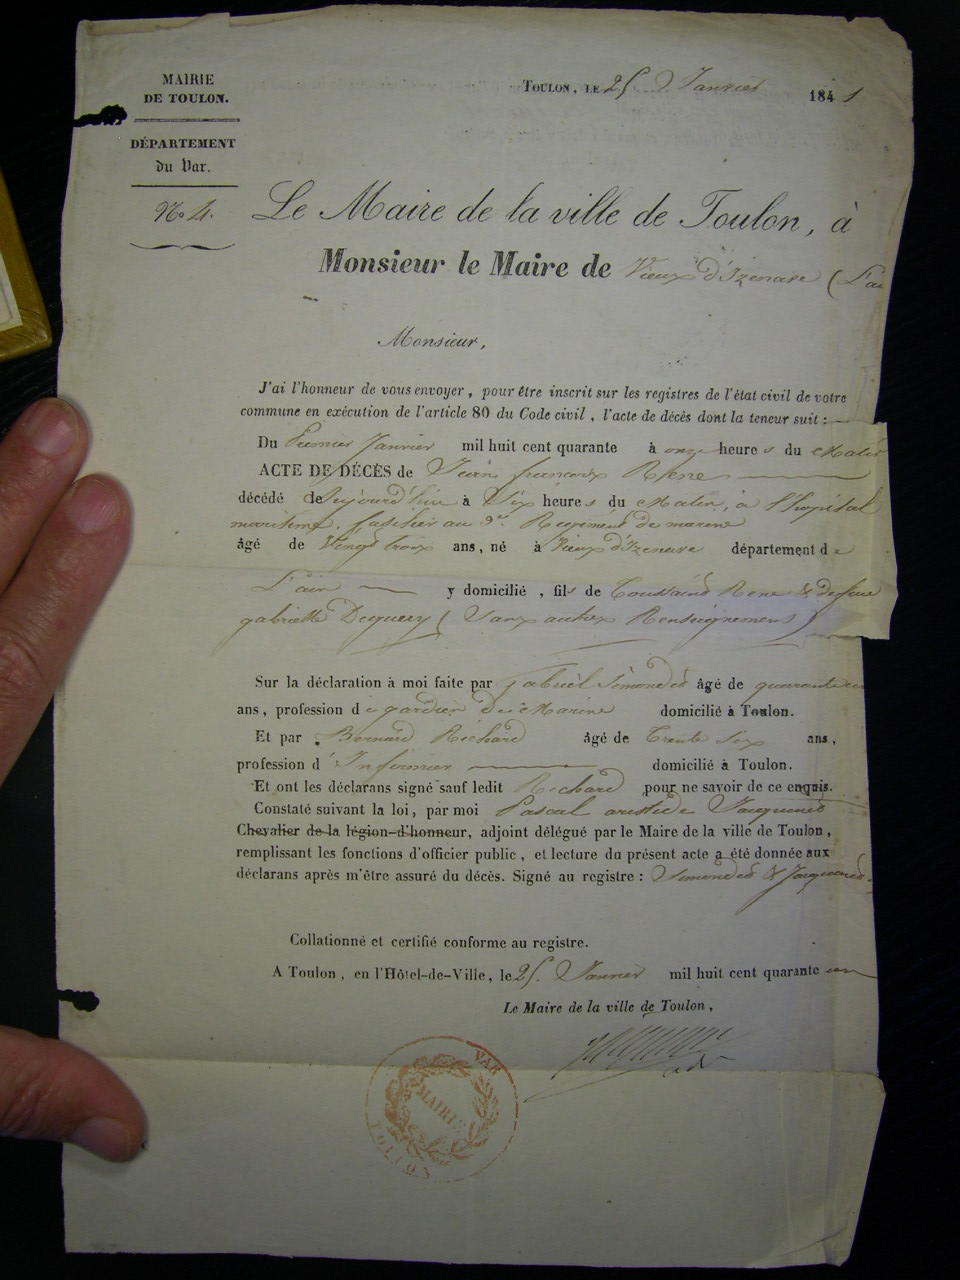 MAIRIE
DE TOULON.
DÉPARTEMENT
du Var.
No 4.
TOULON, LE 25 Janvier 1841
Le Maire de la ville de Toulon, à
Monsieur le Maire de Vieux d'Izenave (L'ai
Monsieur,
J'ai l'honneur de vous envoyer, pour être inscrit sur les registres de l'état civil de votre
commune en exécution de l'article 80 du Code civil, l'acte de décès dont la teneur suit :
Du Premier Janvier mil huit cent quarante à onze heures du Matin
ACTE DE DÉCÈS de Jean françois Rene
décédé aujourd'hui à Six heures du Matin, à l'hopital
maritime, fusilier au 3e Regiment de marine
âgé de Vingt trois ans, né à Vieux d'Izenave département de
L'ain y domicilié, fils de Toussaint Rene & de feue
gabrielle (Sans autres Renseignemens)
Sur la déclaration à moi faite par Gabriel Simondet âgé de quarante
ans, profession de gardien De Marine domicilié à Toulon.
Et par Bernard Richard âgé de Trente Six ans,
profession d'Infirmier domicilié à Toulon.
Et ont les déclarans signé sauf ledit Richard pour ne savoir de ce enquis.
Constaté suivant la loi, par moi Pascal aristide
Chevalier de la légion-d'honneur, adjoint délégué par le Maire de la ville de Toulon,
remplissant les fonctions d'officier public, et lecture du présent acte a été donnée aux
déclarans après m'être assuré du décès. Signé au registre : Simondet &
Collationné et certifié conforme au registre.
A Toulon, en l'Hôtel-de-Ville, le 25 Janvier mil huit cent quarante un
Le Maire de la ville de Toulon,
adt
VAR
MAIRIE
TOULON